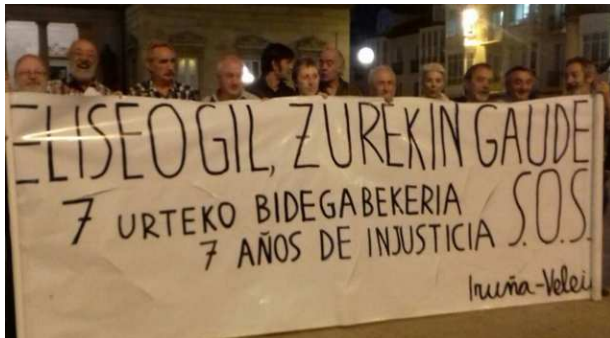 ELISEO GIL, ZUREKIN GAUDE
7 URTEKO BIDEGABEKERIA
7 AÑOS DE INJUSTICIA S.O.S.
Iruña-Velei